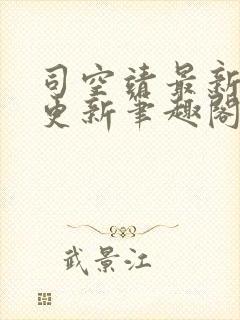 司空靖最新
更新笔趣阁
武景江